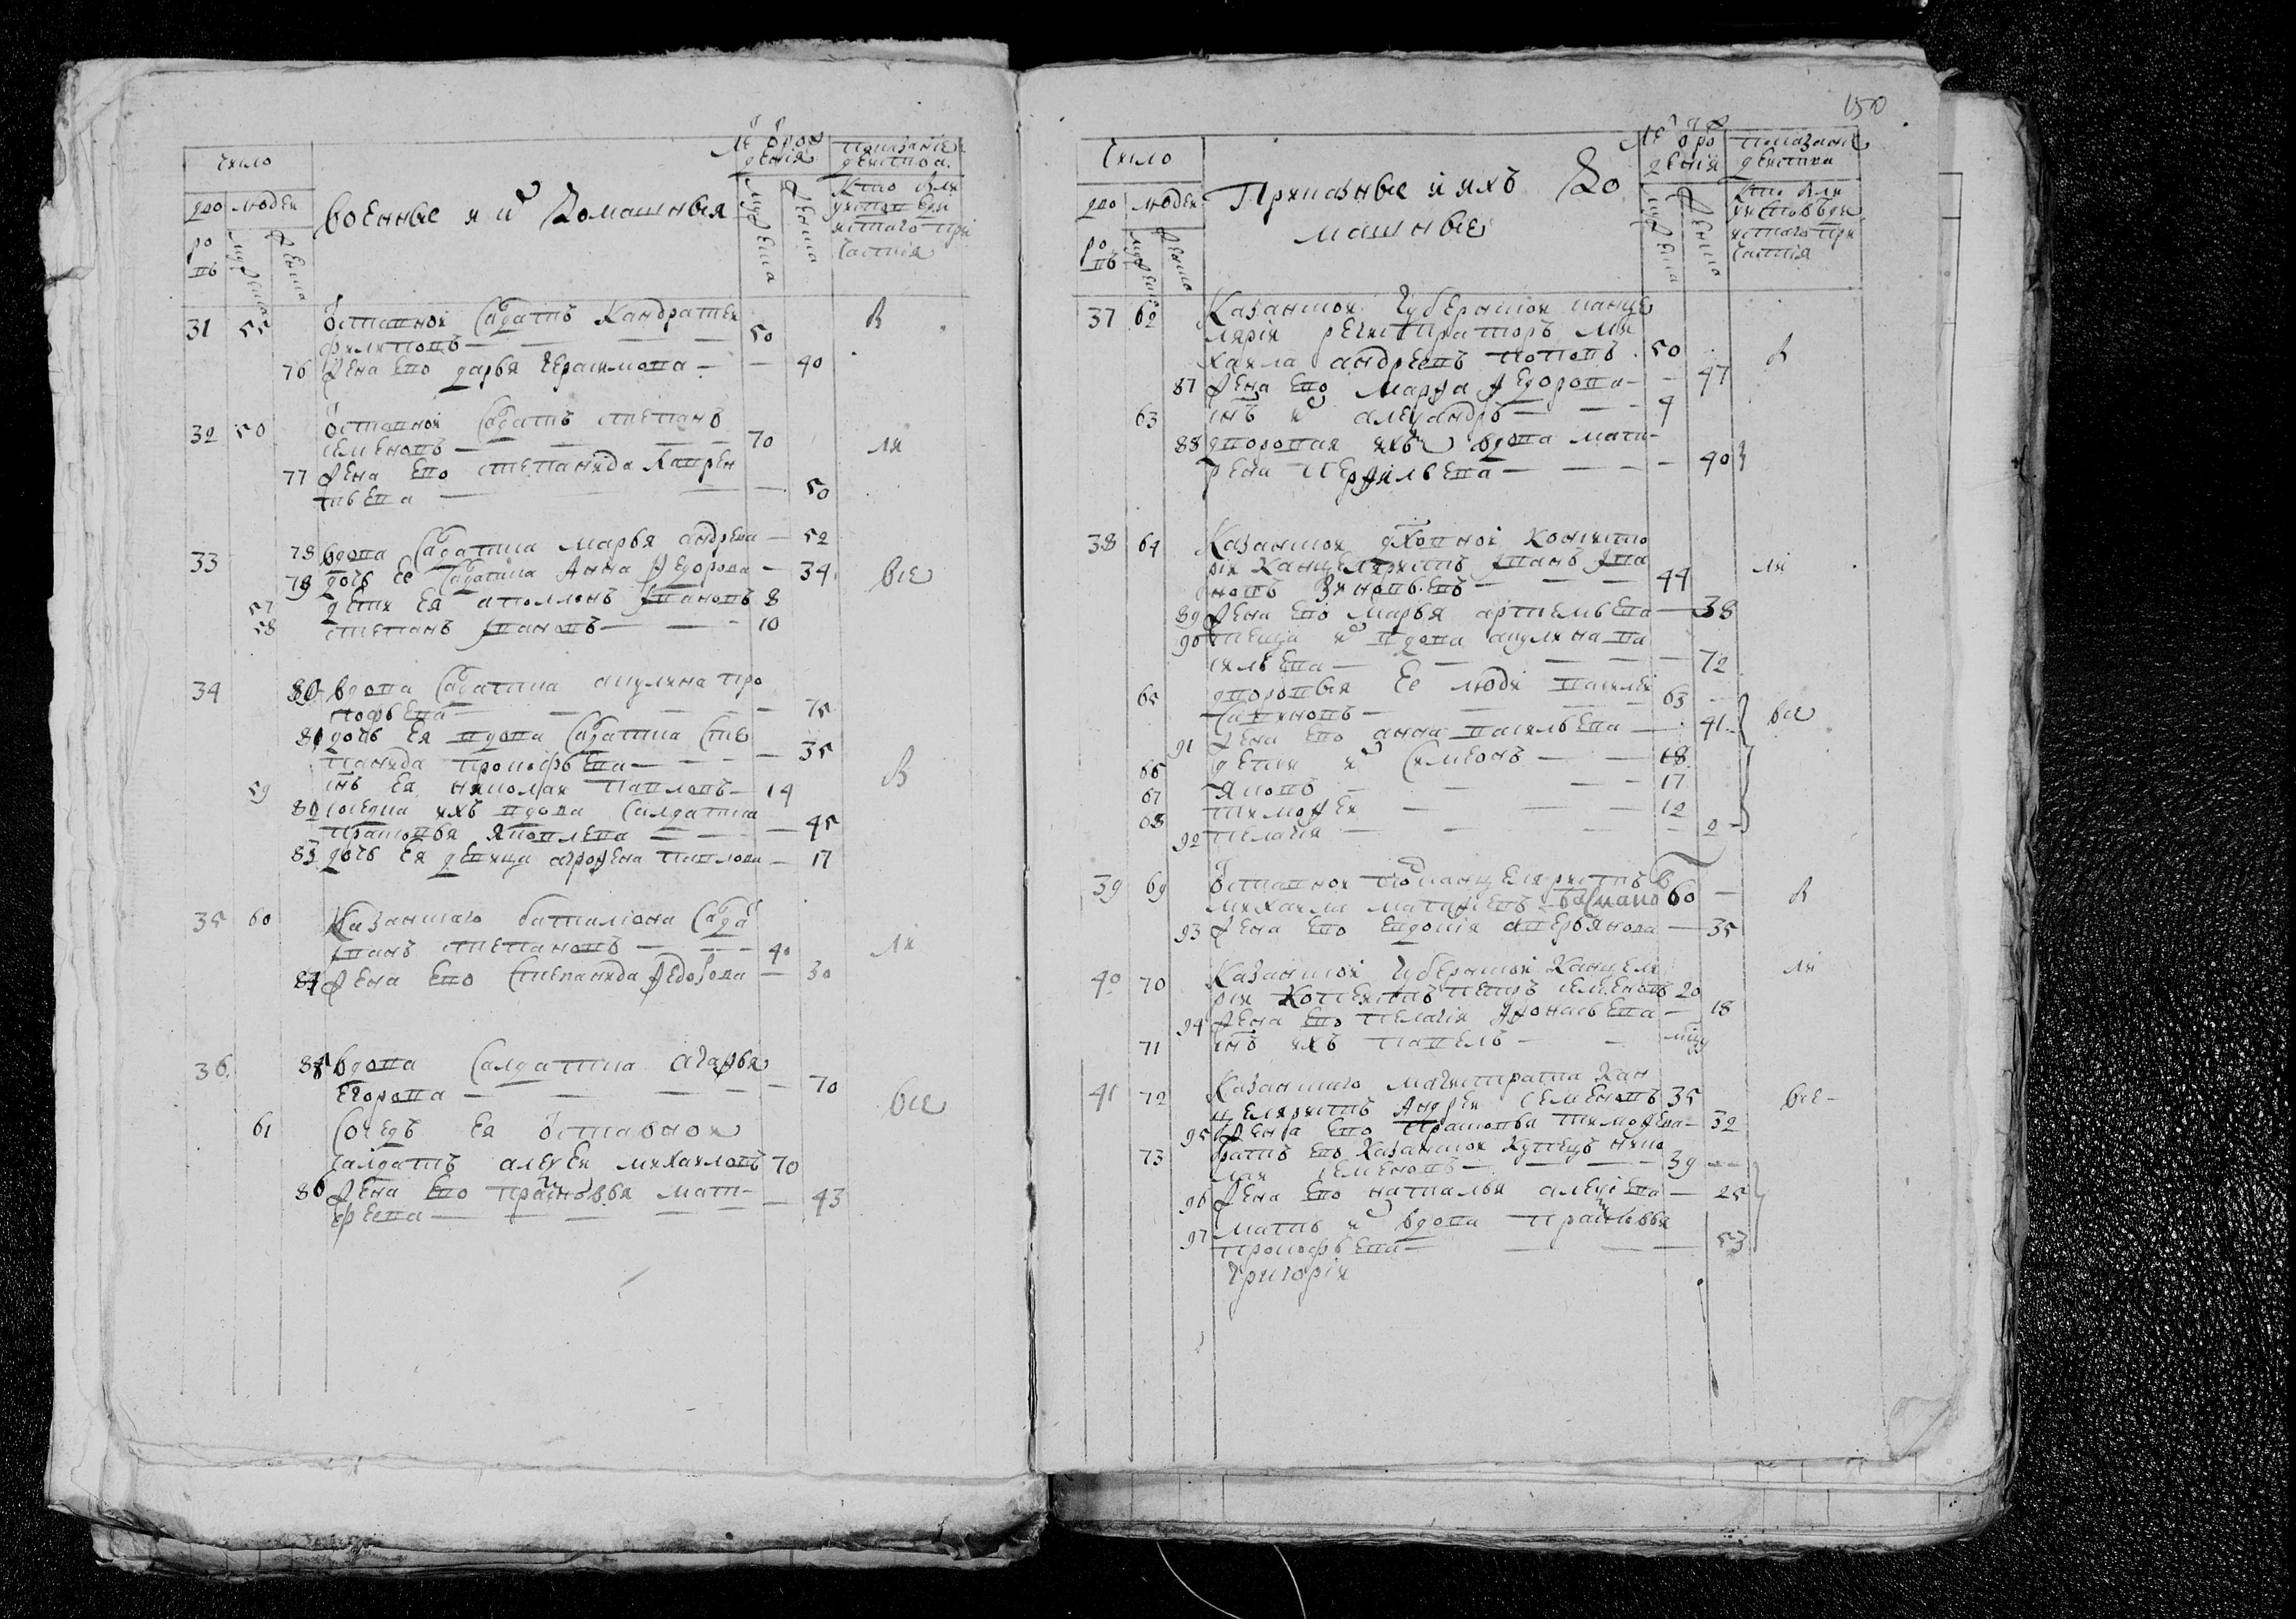 Число
дво ровъ
людеи
мужеска
женска
военные и их домашныя
лета от рождения
мужеска
женска
показание действа
кто были у исповеди и святаго причастия
31 55 отставнои салдатъ Кандратеи
филиповъ — — — 50
76 жена ево дарья герасимова — — 40
32 56 отставнои салдатъ степанъ
семеновъ — — — 70
77 жена ево степанида лаврен
тьева — — — 50
33 78 вдова салдатка марья андрева — 52
79 дочь ее салдатка Анна Федорова — 34
все
57 дети ея аполлонъ Ивановъ 8
58 степанъ Ивановъ — — 10
34 80 вдова салдатка акулина про
кофьева — — — 75
81 дочь ея вдова салдатка сте
панида прокофьева — — — 35
59 снъ ея николаи павловъ — 14
82 соседка ихъ вдова салдатка
прасковья яковлева — — — 45
83 дочь ея девица агрофена павлова — 17
35 60 Казанскаго баталиона салда
Иванъ степановъ — — — 40
84 жена ево степанида Федорова — 30
36 85 вдова салдатка агафья
егорова — — — — 70
все
61 соседъ ея отставнои
салдатъ алексеи михаиловъ 70
86 жена ево прасковья мат
феева — — — — 43
150
Число
дво ровъ
людеи
мужеска
женска
Приказные и ихъ до
машные
лета от рождения
мужеска
женска
показание действа
кто были у исповеди и святаго причастия
37 62 Казанскои губернскои канце
лярiи регистраторъ ми
хаила андреевъ поповъ 50
87 жена ево марфа Федорова — 47
63 снъ их александръ — — 9
88 дворовая ихъ вдова мат
рена — — — 40
38 64 Казанскои духовнои консисто
рiи Канцеляристъ Иванъ Ива
новъ Зиновьевъ — — 44
89 жена ево марья артемьева — 38
90 теща их вдова акулина ва
сильева — — — 72
65 дворовыя ее люди васили
— — 63
91 жена ево анна васильева — 41
все
66 дети их симеонъ — — 18
67 яковъ — — — 17
68 тимофеи — — — 12
92 пелагия — — — 2
39 69 отставнои подканцеляристъ
михаила матфеевъ 60 —
93 жена ево евдокiя аверьянова — 35
40 70 Казанскои губернскои Канцеля
рiи Копеистъ петръ семеновъ 20
94 жена ево пелагiя Афонасьева — 18
71 снъ ихъ павелъ — —
41 72 Казанскаго магистрата Кан
целяристъ Андреи семеновъ 35
все
95 жена ево прасковья тимофеева — 32
73 братъ ево Казанскои купецъ нико
лаи семеновъ — — 39
96 жена ево наталья алексеева — 25
97 мать их вдова прасковья
прокофьева — — — 53
григорiи